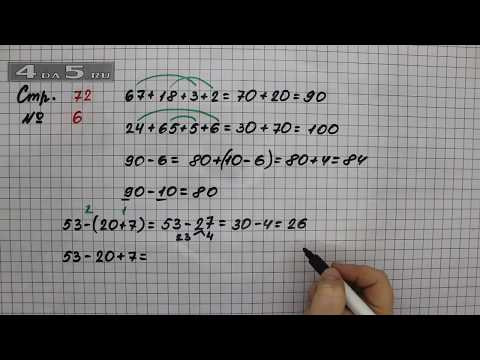 4 DA 5.RU
Стр. 72
№ 6
67+18+3+2=70+20=90
24+65+5+6=30+70=100
90-6= 80+(10-6)=80+4=84
90-10=80
2 1
53-(20+7)= 53-27=30-4=26
23 4
53-20+7=